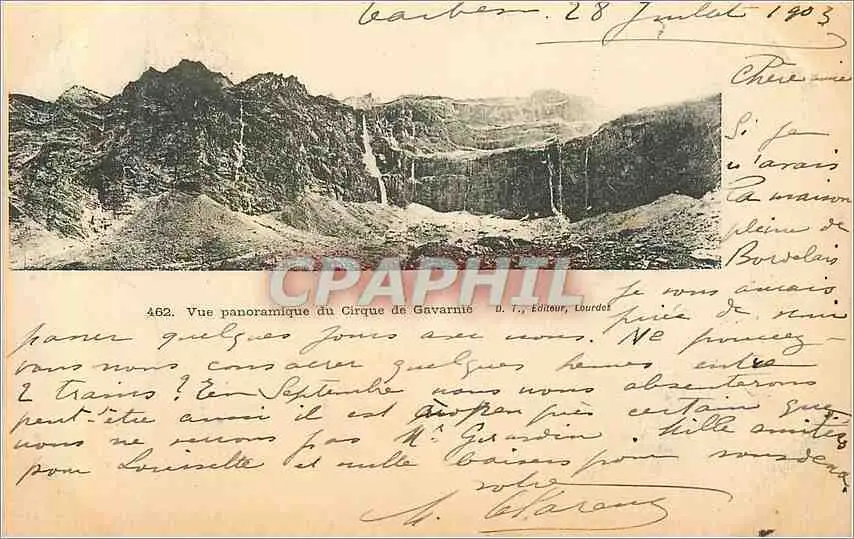 Tarbes. 28 Juillet 1903
Chère amie
Si je
n'avais
la maison
pleine de
Bordelais
je vous aurais
priée de venir
CPAPHIL
462. Vue panoramique du Cirque de Gavarnie D. T., Editeur, Lourdes
passer quelques jours avec nous. Ne pouvez-
vous nous consacrer quelques heures entre
2 trains? En Septembre nous nous absenterons
peut-être aussi il est à peu près certain que
nous ne verrons pas Mr Girardin. Mille amitiés
pour Louisette et mille baisers pour vous deux.
votre
M.